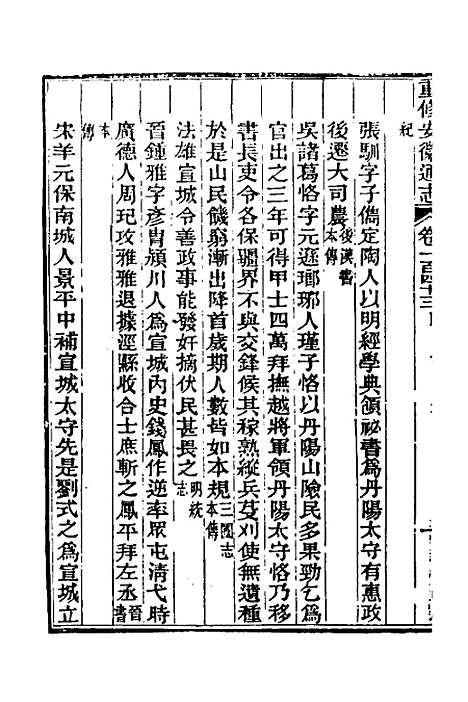 重修安徽通志 卷一百四十三
紀
張馴字子儁定陶人以明經學典領祕書爲丹陽太守有惠政
後遷大司農後漢書本傳
吳諸葛恪字元遜瑯琊人瑾子恪以丹陽山險民多果勁乞爲
官出之三年可得甲士四萬拜撫越將軍領丹陽太守恪乃移
書長吏令各保疆界不與交鋒候其稼熟縱兵芟刈使無遺種
於是山民饑窮漸出降首歲期人數皆如本規三國志本傳
法雄宣城令善政事能發奸摘伏民甚畏之明統志
晉鍾雅字彥胄潁川人爲宣城內史錢鳳作逆率眾屯清弋時
廣德人周玘攻雅雅退據涇縣收合士庶斬之鳳平拜左丞晉書
本傳
宋羊元保南城人景平中補宣城太守先是劉式之爲宣城立